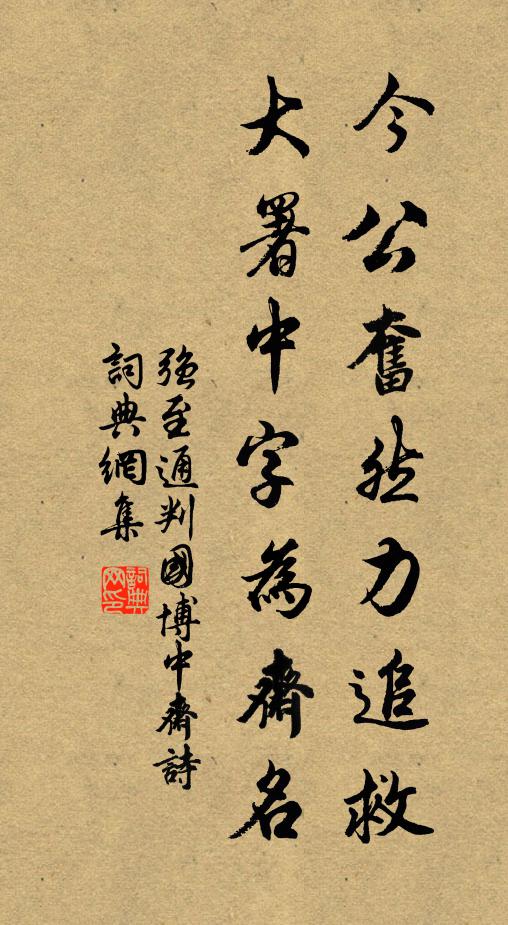 今公奮然力追救
大署中字為齋名
強至通判國博中齋詩
詞典網集
詞典網印